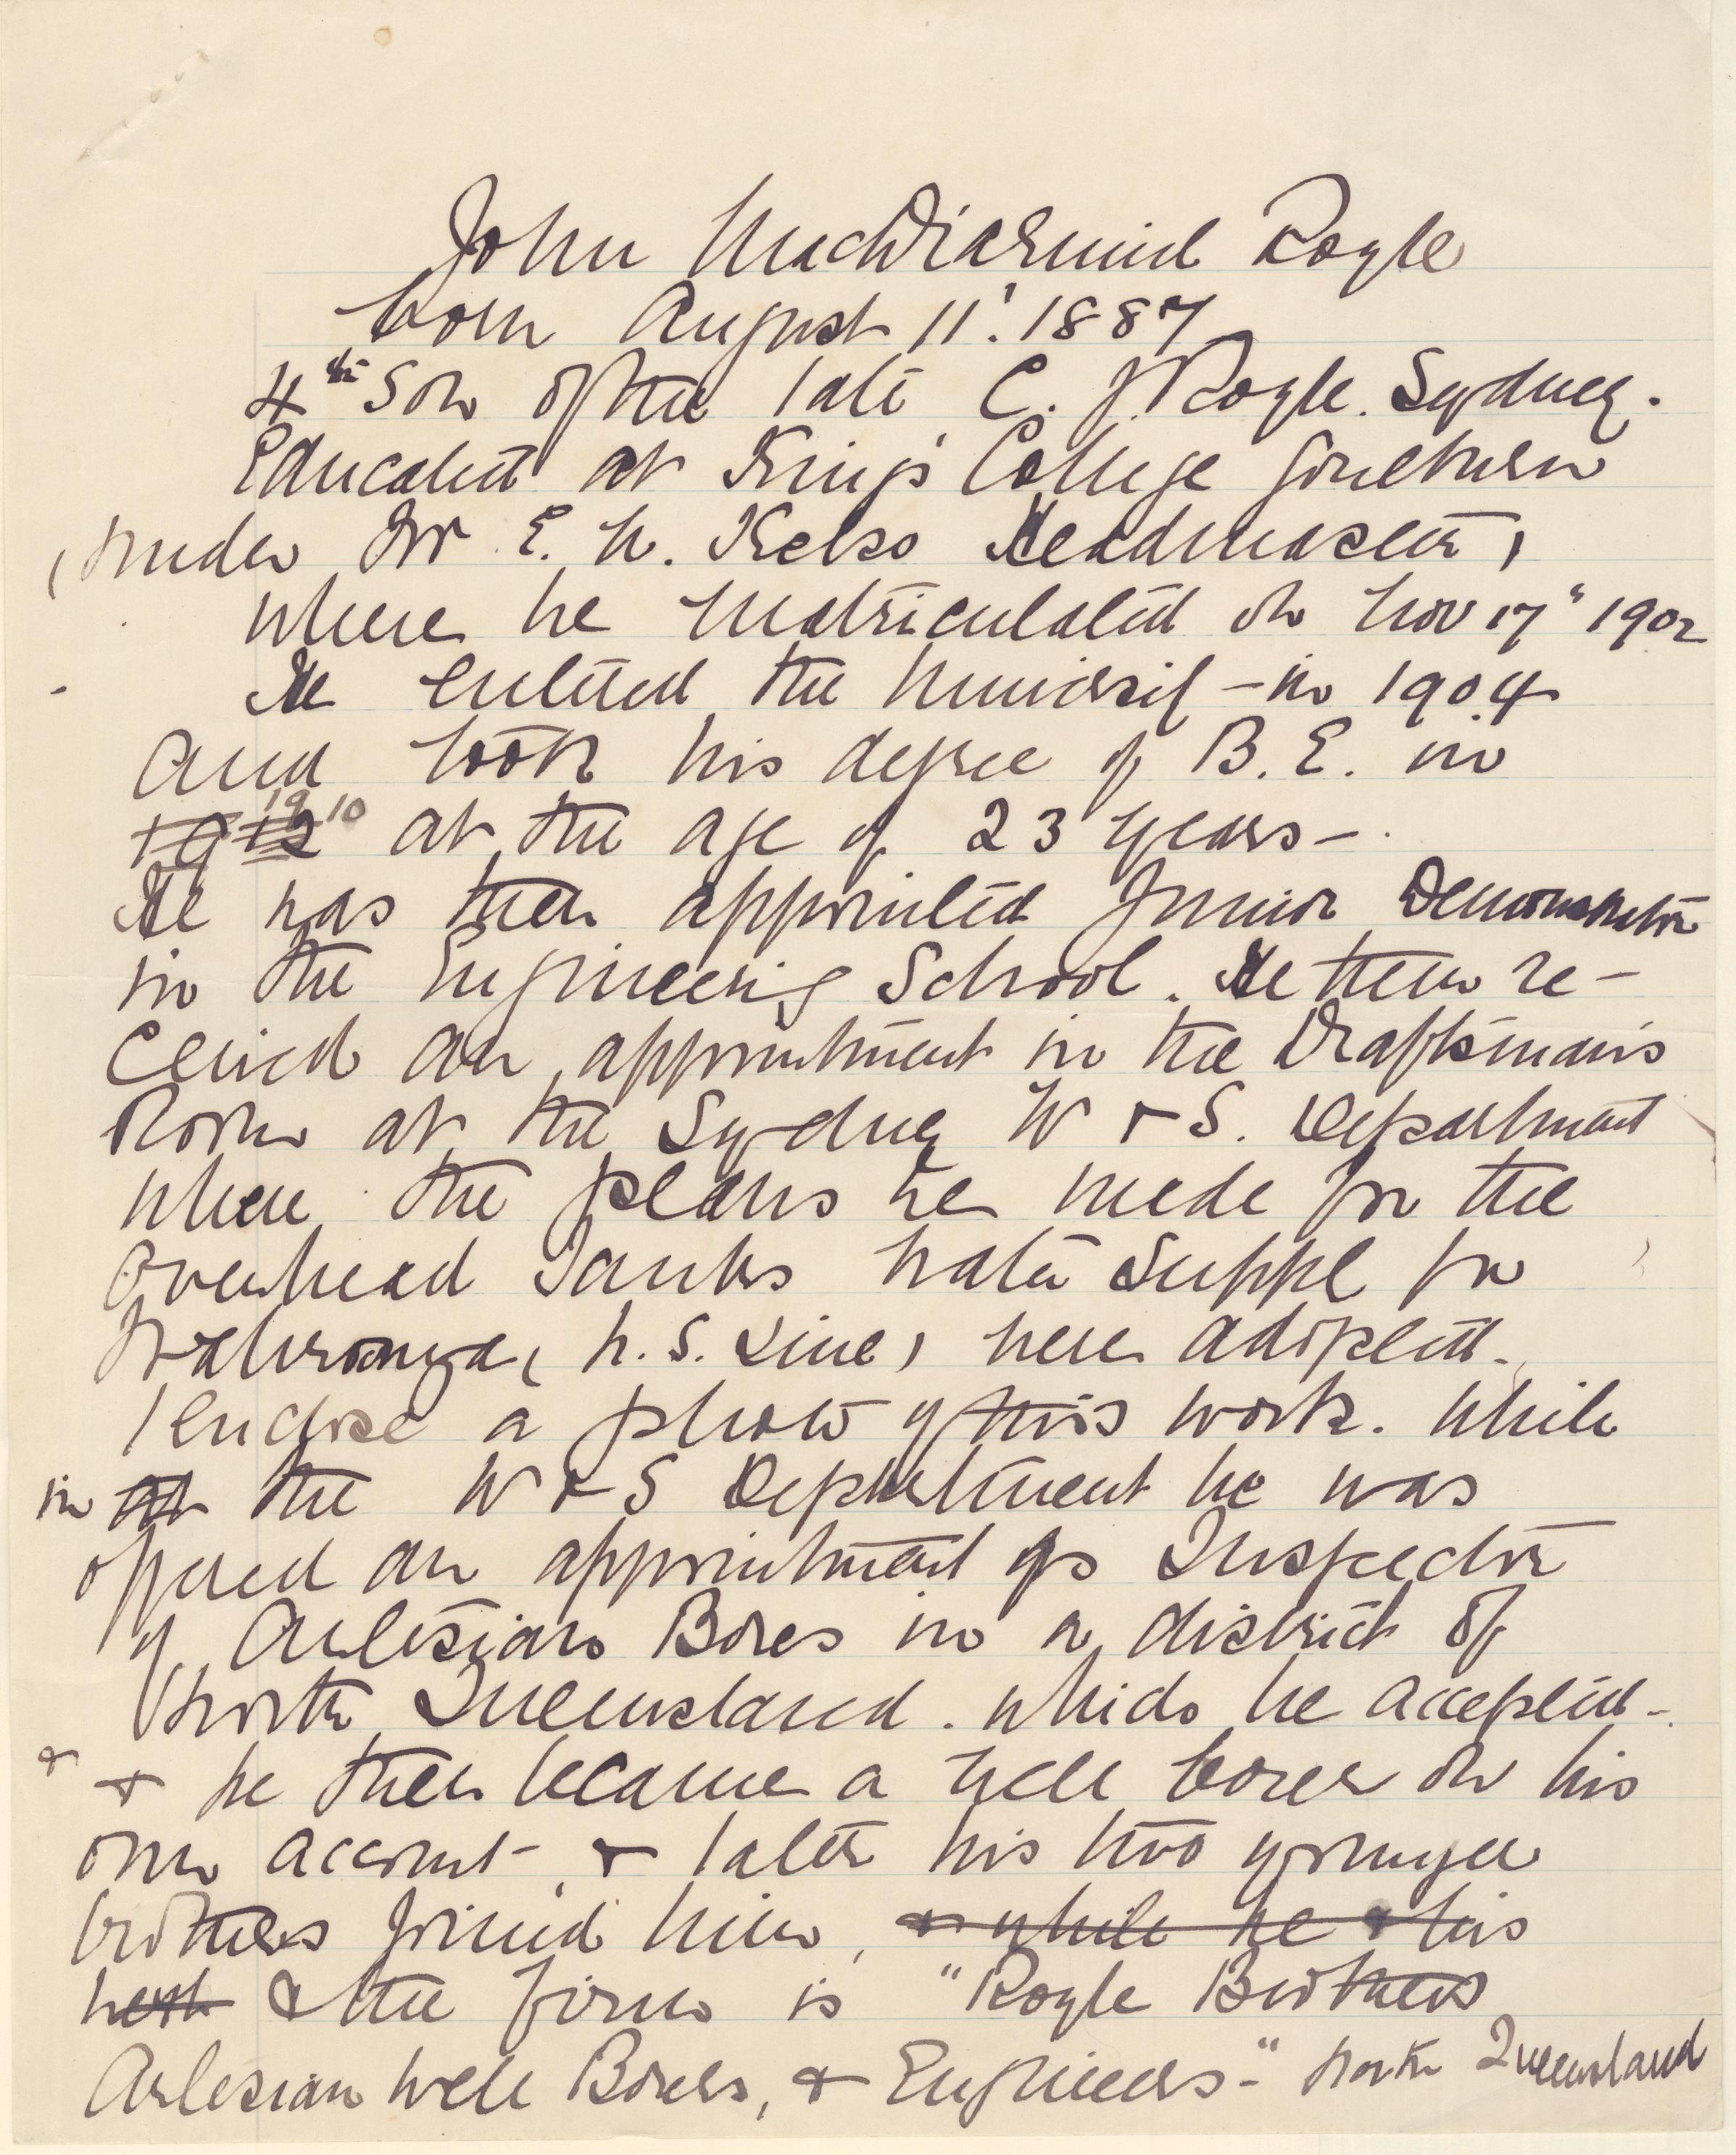 John MacDiarmid Royle
born August 11'. 1887
4th Son of the late C. J. Royle. Sydney.
Educated at King's College Goulburn
(under Mr E. W. Kelso Headmaster)
where he Matriculated on Nov 17" 1902
He entered the University - in 1904
and took his degree of B. E. in
1912 1910 at the age of 23 years -
He was then appointed Junior Demonstrator
in the Engineering School. He then re-
ceived an appointment in the Draftsman's
Room at the Sydney W & S. Department
where the plans he made for the
Overhead Tanks Water Supply for
Wahroonga, (N. S. Line) were adopted.
I enclose a photo of this work. While
in at the W & S Department he was
offered an appointment as Inspector
of Artesian Bores in a district of
North Queensland. which he accepted -
& & he then became a well borer on his
own account - & later his two younger
brothers joined him, & while he & his
& the firm is "Royle Brothers
Artesian Well Borers, & Engineers -" North Queensland